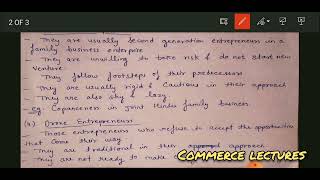 2 OF 3
- They are usually second generation entrepreneurs in a
family business enterprise
- They are unwilling to take risk & do not start new
venture.
- They follow footsteps of their predecessors
- They are usually rigid & cautious in their approach
- They are also shy & lazy.
eg. Coparceners in joint Hindu family business
(4.) Drone Entrepreneurs
- Those entrepreneurs who refuse to accept the opportunities
that come their way.
- They are traditional in their approach
- They are not ready to make
COMMERCE LECTURES